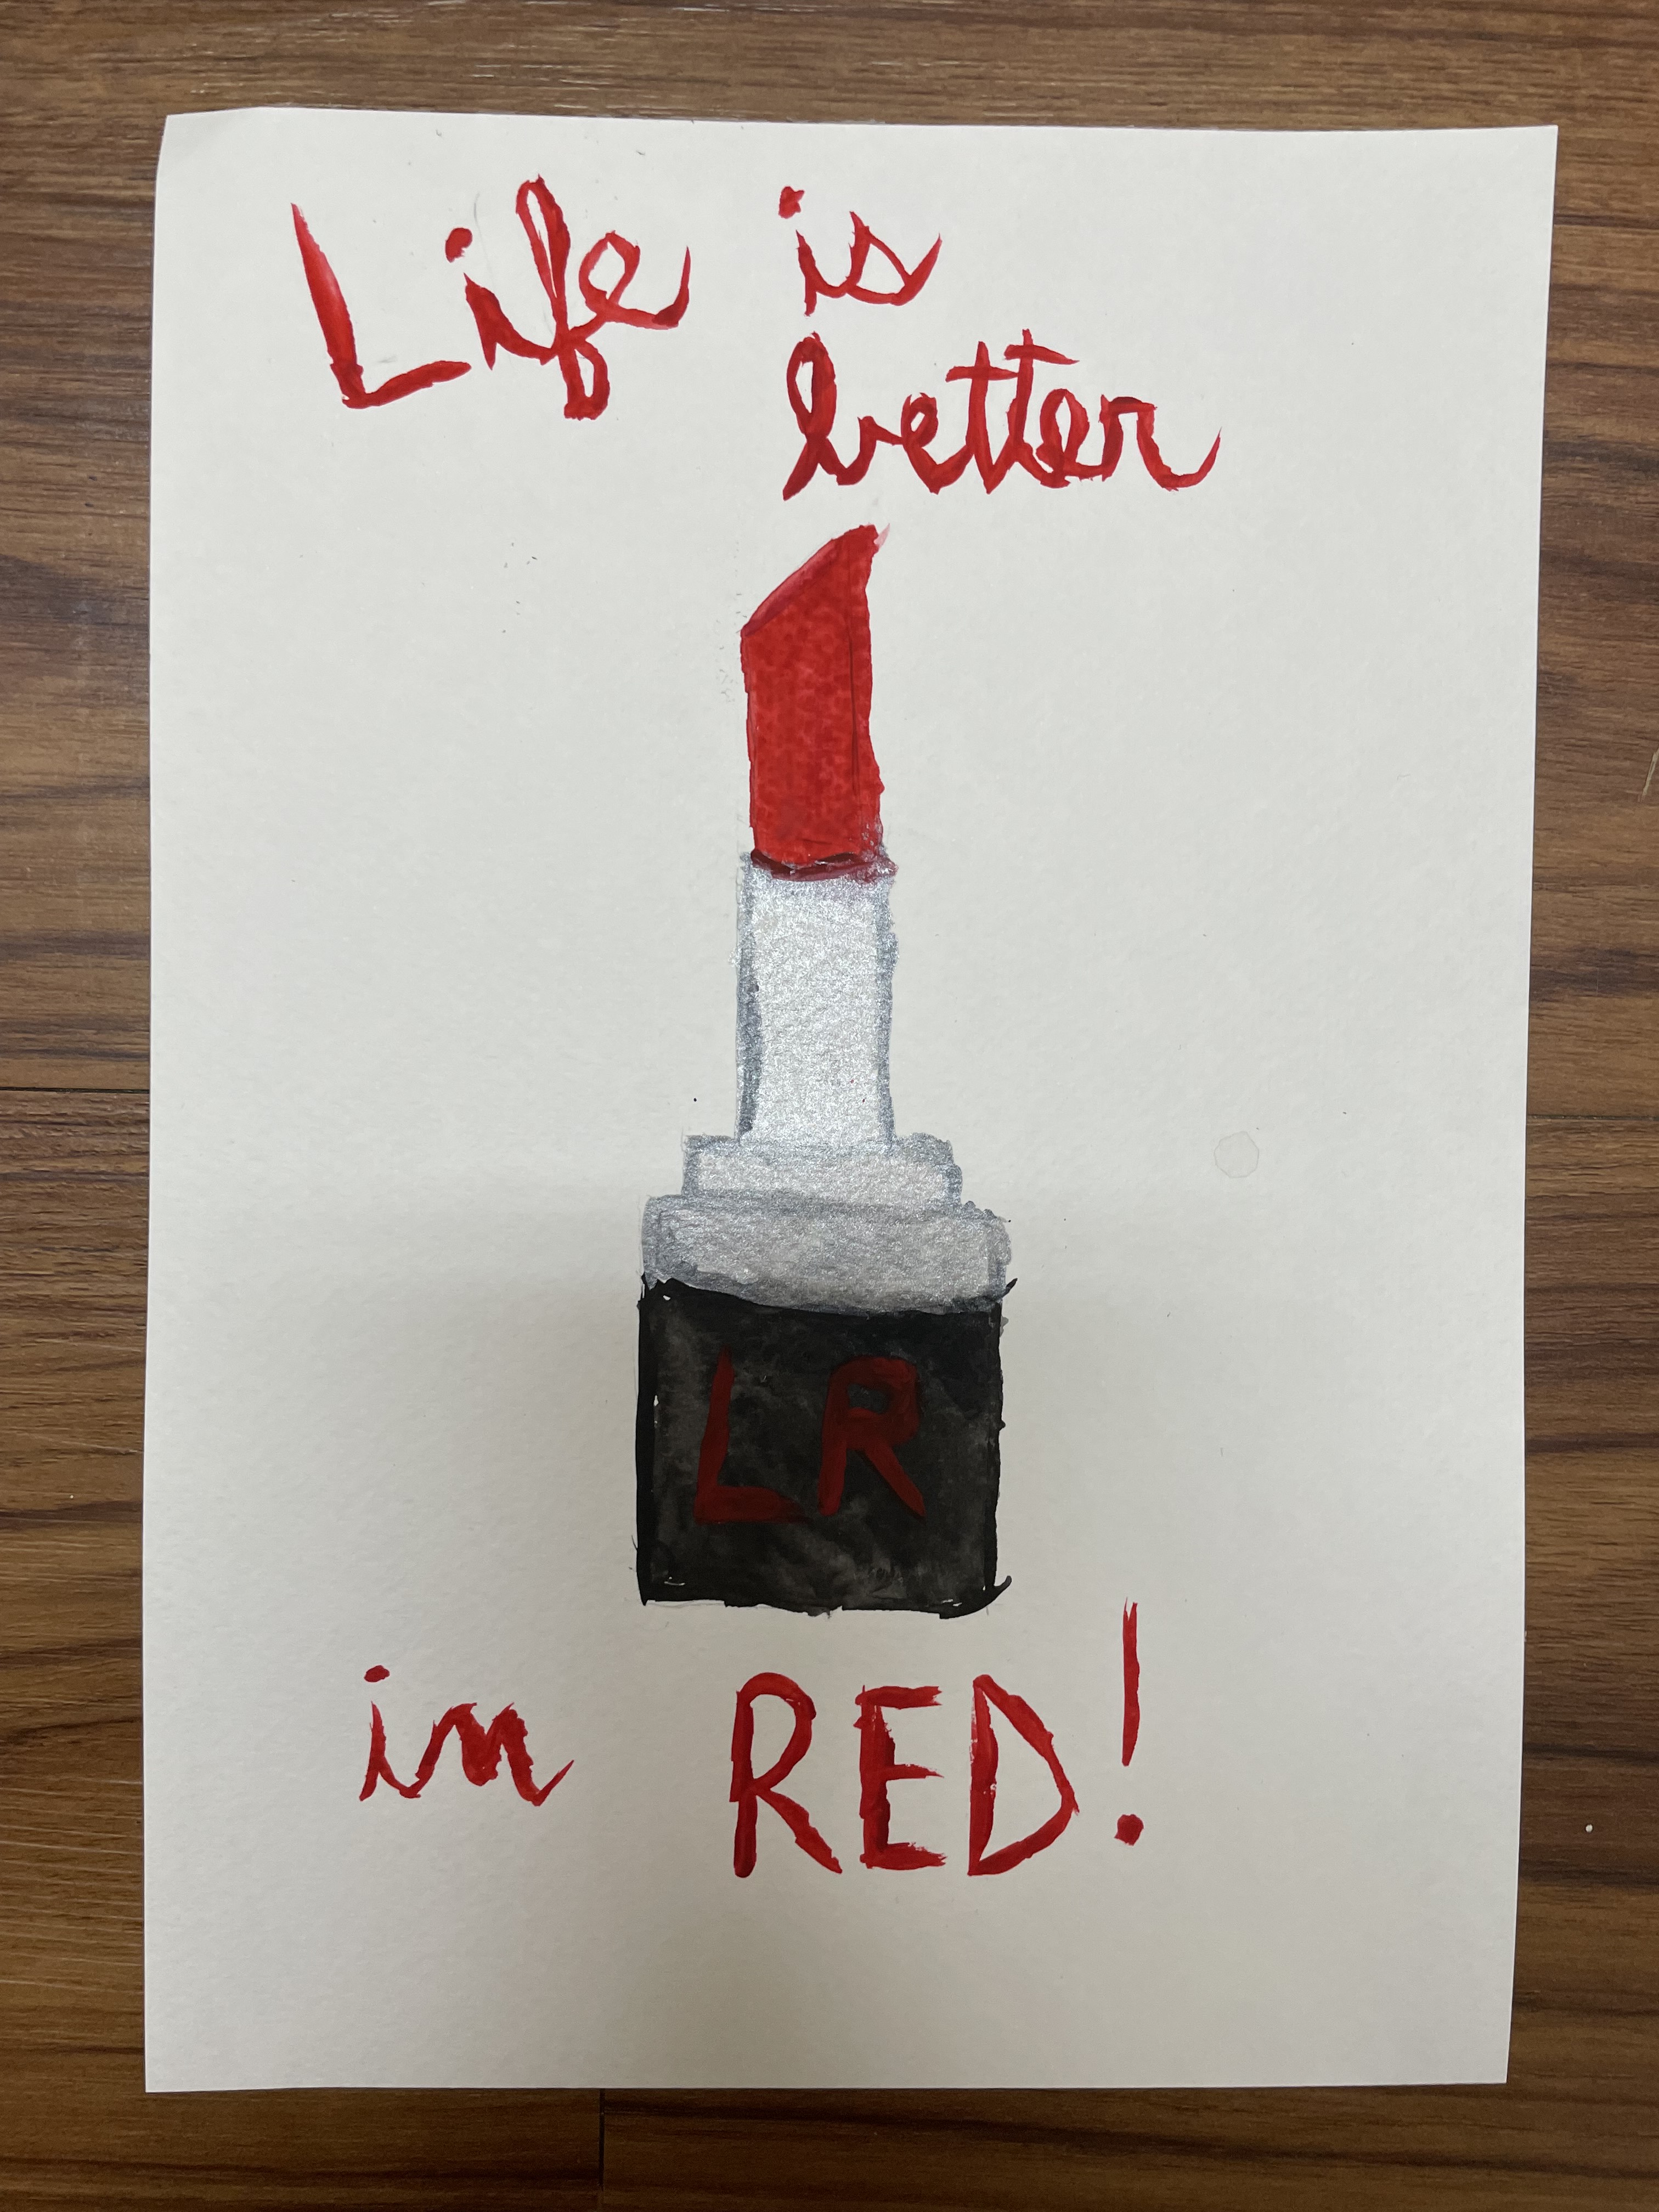 Life is
better
LR
in RED!